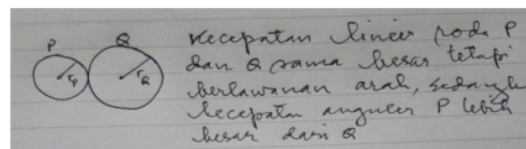 P
Q
rp
rQ
Kecepatan linier roda P
dan Q sama besar tetapi
berlawanan arah, sedangk
kecepatan anguler P lebih
besar dari Q